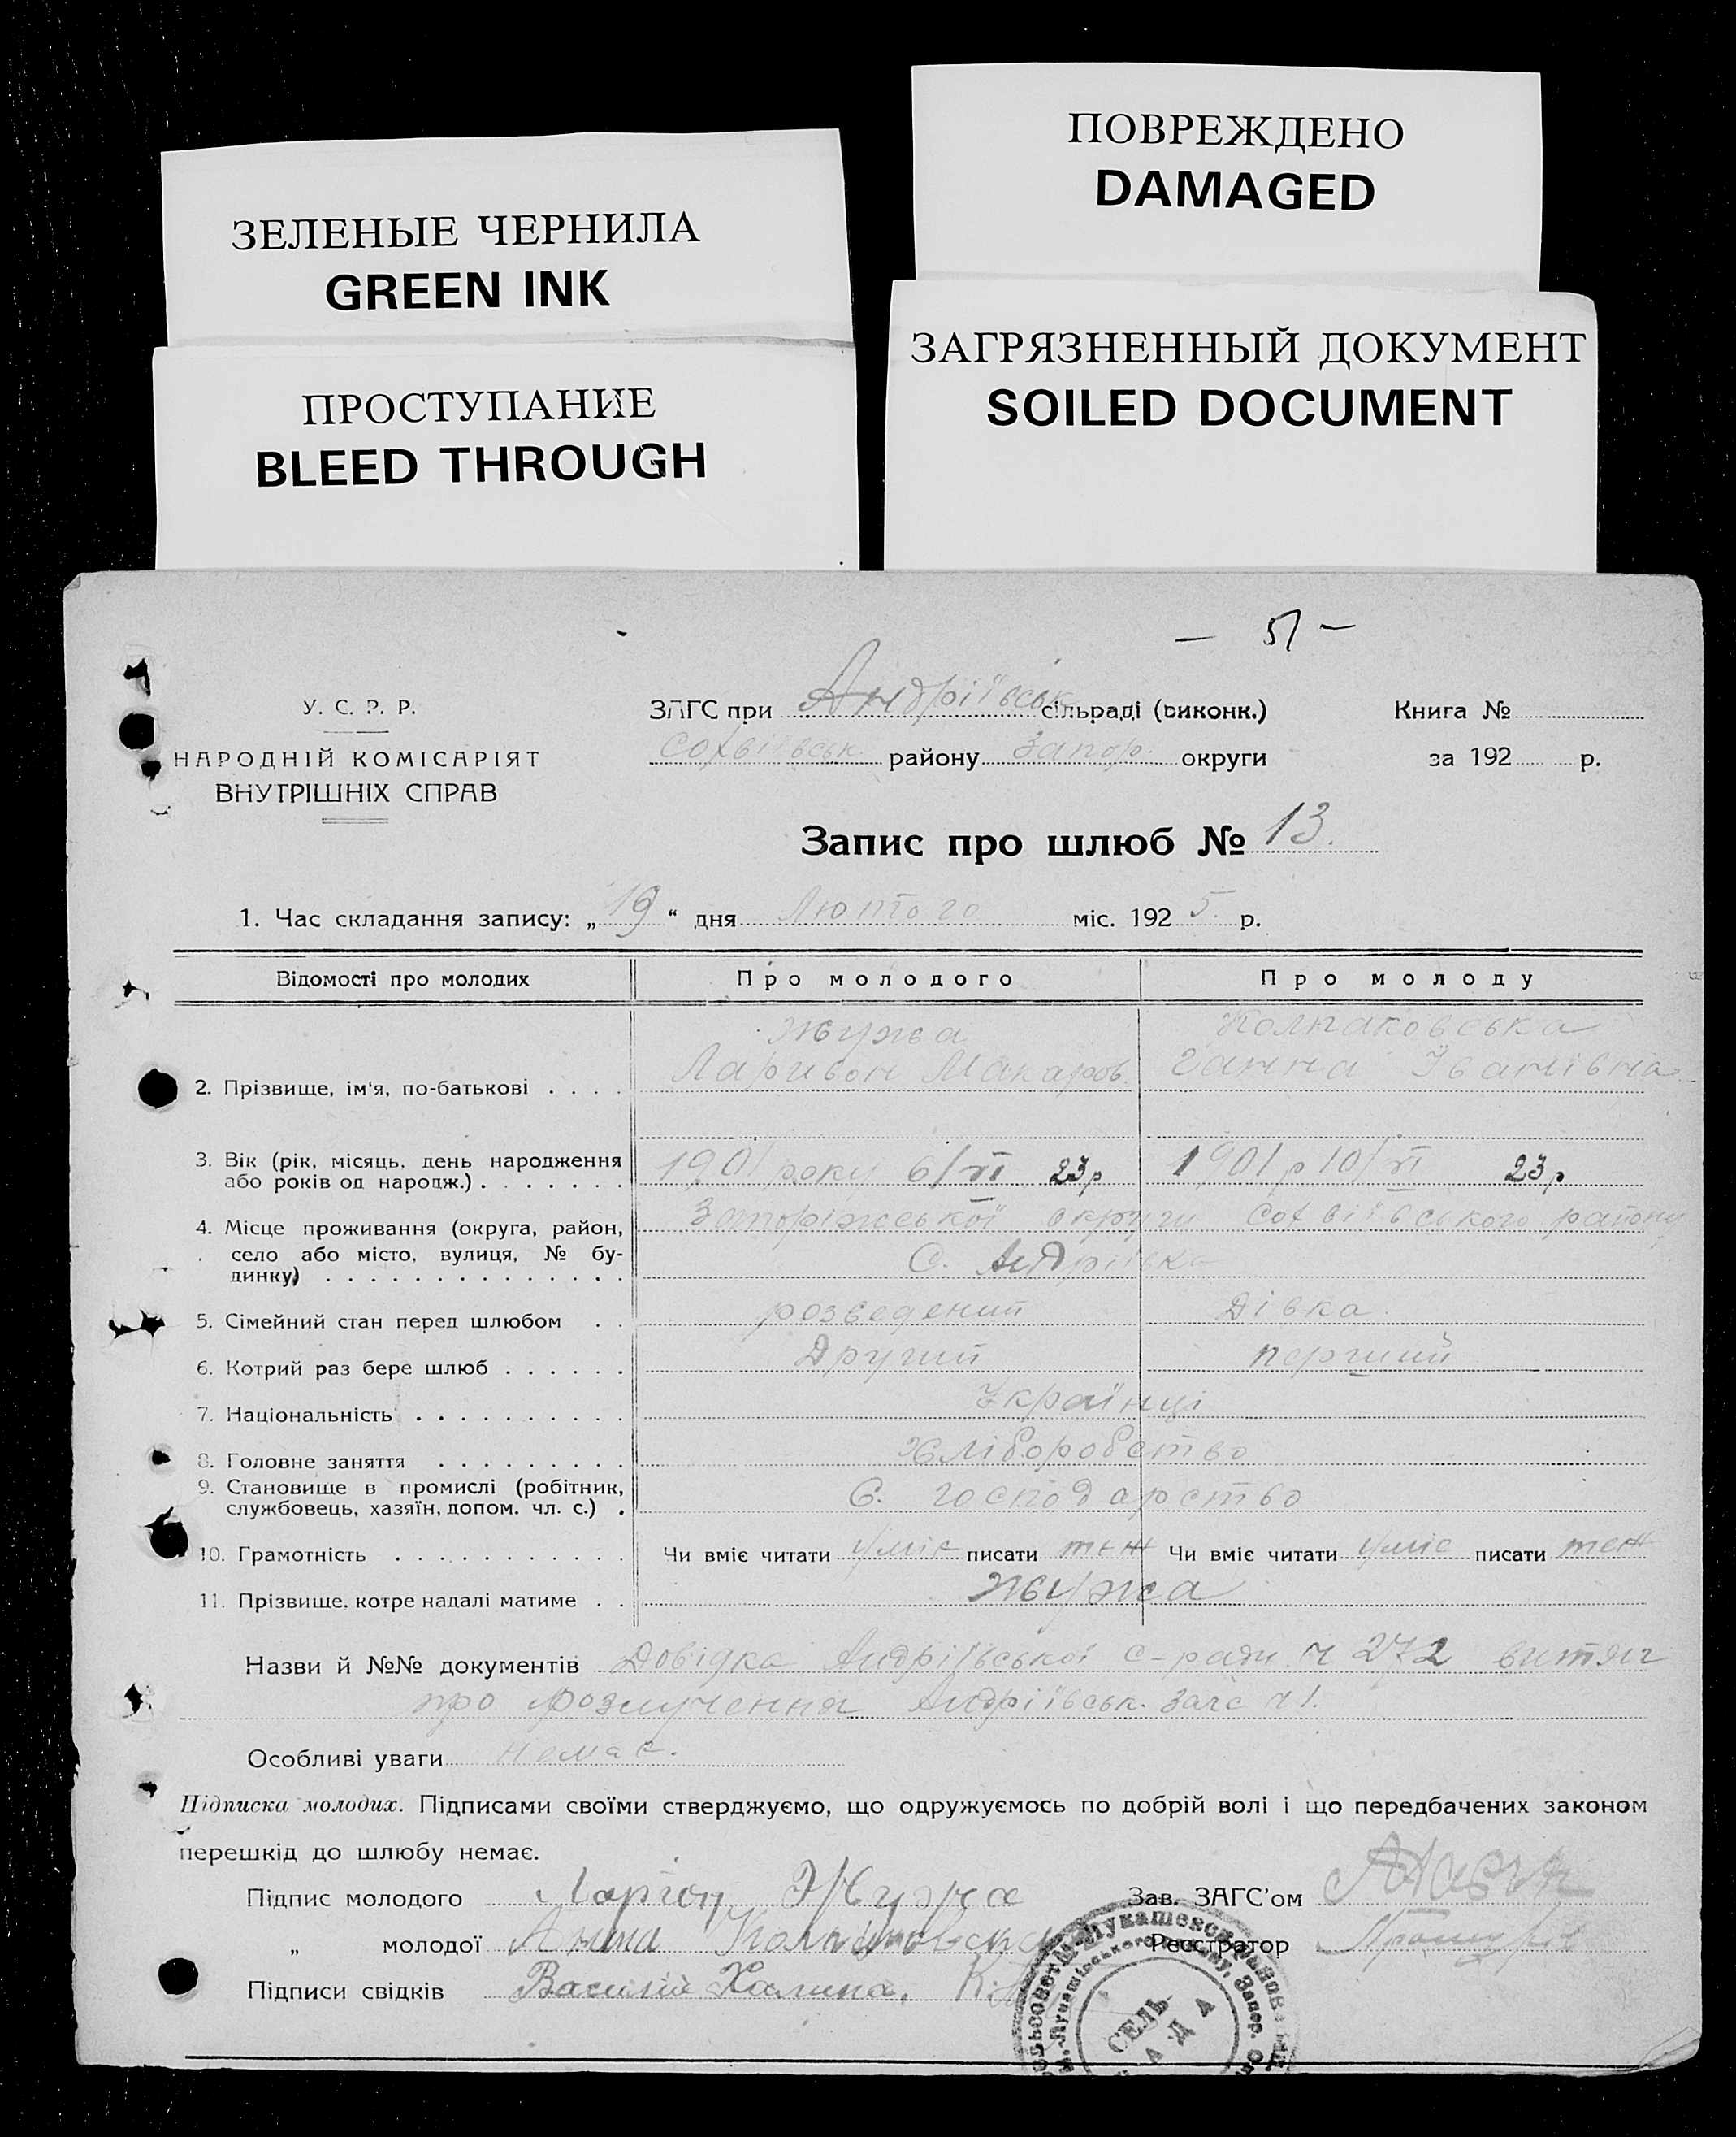 ПОВРЕЖДЕНО
DAMAGED
ЗЕЛЕНЫЕ ЧЕРНИЛА
GREEN INK
ЗАГРЯЗНЕННЫЙ ДОКУМЕНТ
SOILED DOCUMENT
ПРОСТУПАНИЕ
BLEED THROUGH
— 51 —
У. С. Р. Р.
НАРОДНІЙ КОМІСАРІЯТ
ВНУТРІШНІХ СПРАВ
ЗАГС при Андріївськ сільраді (виконк.)
Софіївськ. району Запор. округи
Книга №
за 192 р.
Запис про шлюб № 13.
1. Час складання запису: „ 19 “ дня Лютого міс. 192 5 р.
Відомості про молодих Про молодого Про молоду
Жужа Колпаковська
2. Прізвище, ім'я, по-батькові . . . . Ларивон Макаров. Ганна Іванівна
3. Вік (рік, місяць, день народження
або років од народж.) . . . . . . . 1901 року 6/VI 23 р 1901 р 10/VI 23 р
4. Місце проживання (округа, район, Запоріжської округи Софіївського району
село або місто, вулиця, № бу-
динку) С. Андріївка
5. Сімейний стан перед шлюбом . . розведений Дівка.
6. Котрий раз бере шлюб . . . . . . Другий перший
7. Національність . . . . . . . . . . Українці
8. Головне заняття . . . . . . . . . Хліборобство
9. Становище в промислі (робітник,
службовець, хазяїн, допом. чл. с.) . С. господарство
10. Грамотність . . . . . . . . . . . Чи вміє читати уміє писати теж Чи вміє читати уміє писати теж
11. Прізвище, котре надалі матиме . . Жужа
Назви й №№ документів Довідка Андріївської с-ради ч 272 витяг
про розлучення Андріївськ. Загс ч 1.
Особливі уваги немає.
Підписка молодих. Підписами своїми стверджуємо, що одружуємось по добрій волі і що передбачених законом
перешкід до шлюбу немає.
Підпис молодого Ларион Жужа Зав. ЗАГС'ом
„ молодої Анна Колпаковска Реєстратор
Підписи свідків Василий Халина,
СЕЛЬ
РАДА